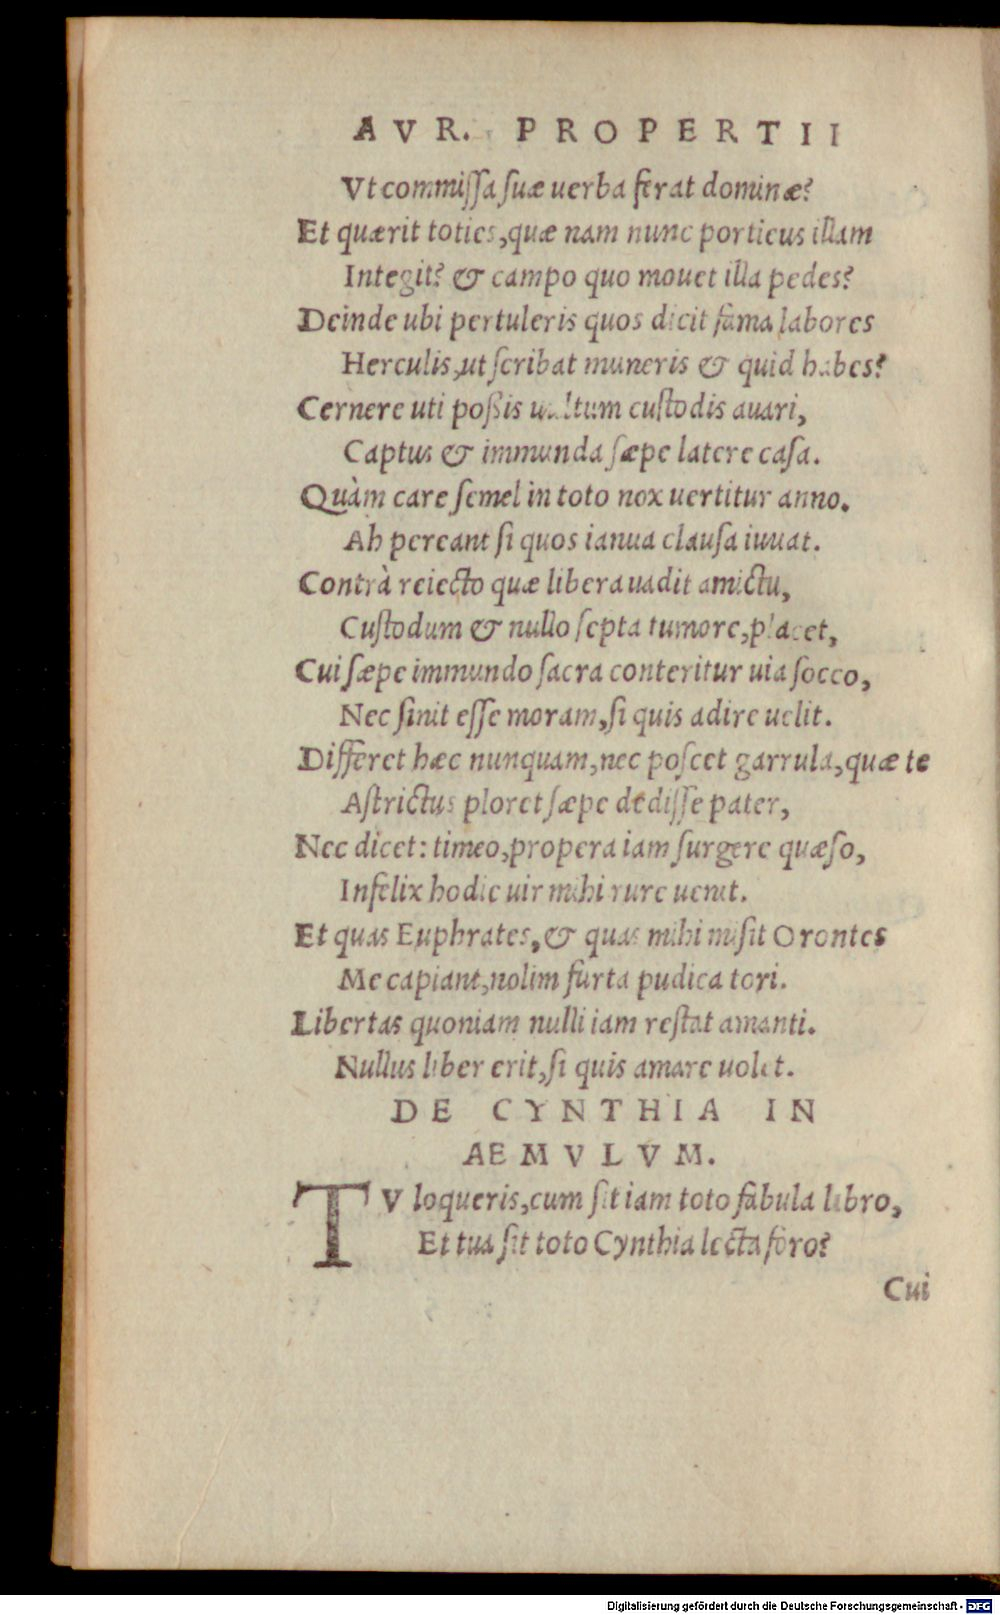 AVR. PROPERTII
Vt commissa suæ uerba ferat dominæ?
Et quærit toties, quæ nam nunc porticus illam
Integit? & campo quo mouet illa pedes?
Deinde ubi pertuleris quos dicit fama labores
Herculis, ut scribat muneris & quid habes?
Cernere uti poßis uultum custodis auari,
Captus & immunda sæpe latere casa.
Quàm care semel in toto nox uertitur anno.
Ah pereant si quos ianua clausa iuuat.
Contrà reiecto quæ libera uadit amictu,
Custodum & nullo septa tumore, placet,
Cui sæpe immundo sacra conteritur uia socco,
Nec sinit esse moram, si quis adire uelit.
Differet hæc nunquam, nec poscet garrula, quæ te
Astrictus ploret sæpe dedisse pater,
Nec dicet: timeo, propera iam surgere quæso,
Infelix hodie uir mihi rure uenit.
Et quas Euphrates, & quas mihi misit Orontes
Me capiant, nolim furta pudica tori.
Libertas quoniam nulli iam restat amanti.
Nullus liber erit, si quis amare uolet.
DE CYNTHIA IN
AEMVLVM.
TV loqueris, cum sit iam toto fabula libro,
Et tua sit toto Cynthia lecta foro?
Cui
Digitalisierung gefördert durch die Deutsche Forschungsgemeinschaft - DFG